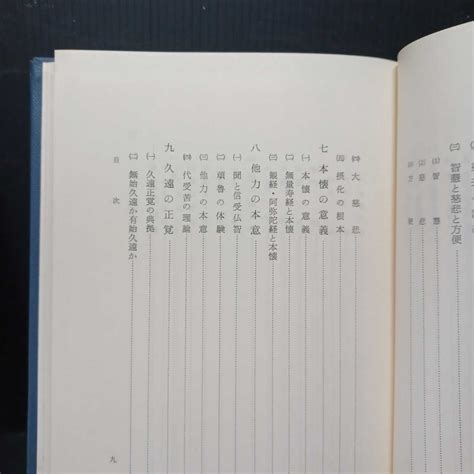 ㈢ 智慧と慈悲と方便
智慧
慈悲
㈣ 大慈悲
㈤ 摂化の根本
七 本懐の意義
㈠ 本懐の意義
㈡ 無量寿経と本懐
㈢ 観経・阿弥陀経と本懐
八 他力の本意
㈠ 聞と信受仏智
㈡ 頑魯の体験
㈢ 他力の本意
㈣ 代受苦の理論
九 久遠の正覚
㈠ 久遠正覚の典拠
㈡ 無始久遠か有始久遠か
目次
九